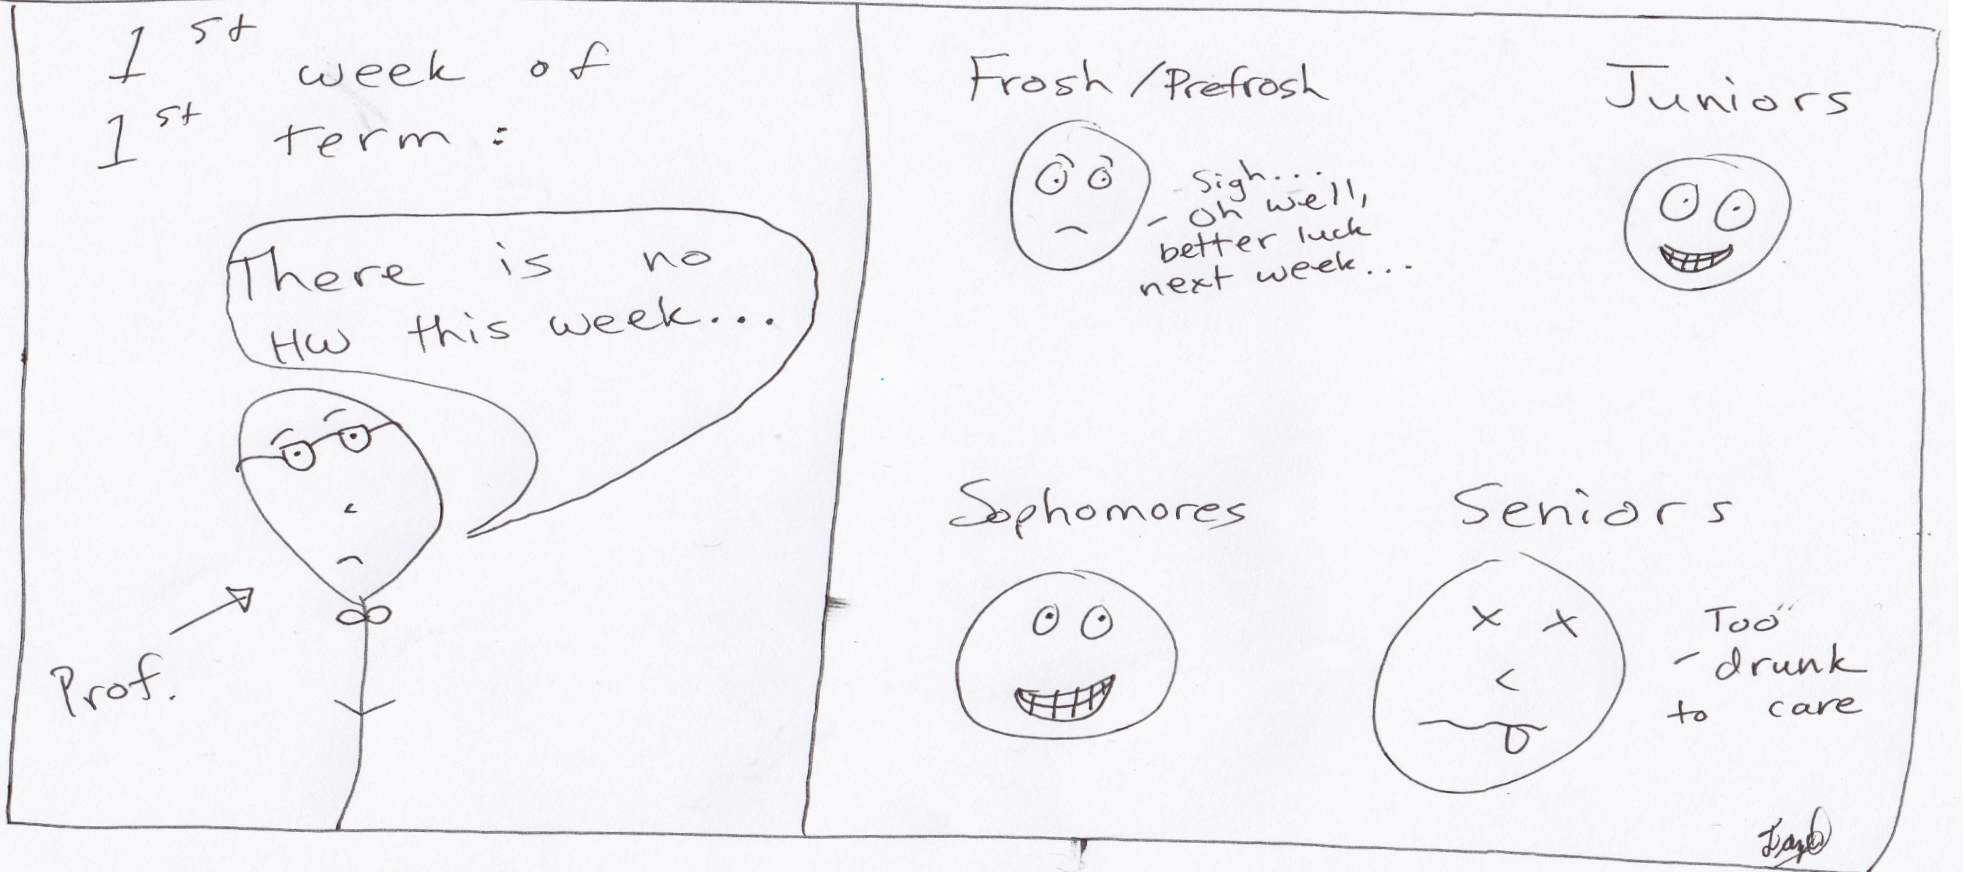 1st week of
1st term:
There is no
HW this week...
Prof.
Frosh/Prefrosh
- Sigh...
- oh well,
better luck
next week...
Juniors
Sophomores
Seniors
Too
- drunk
to care